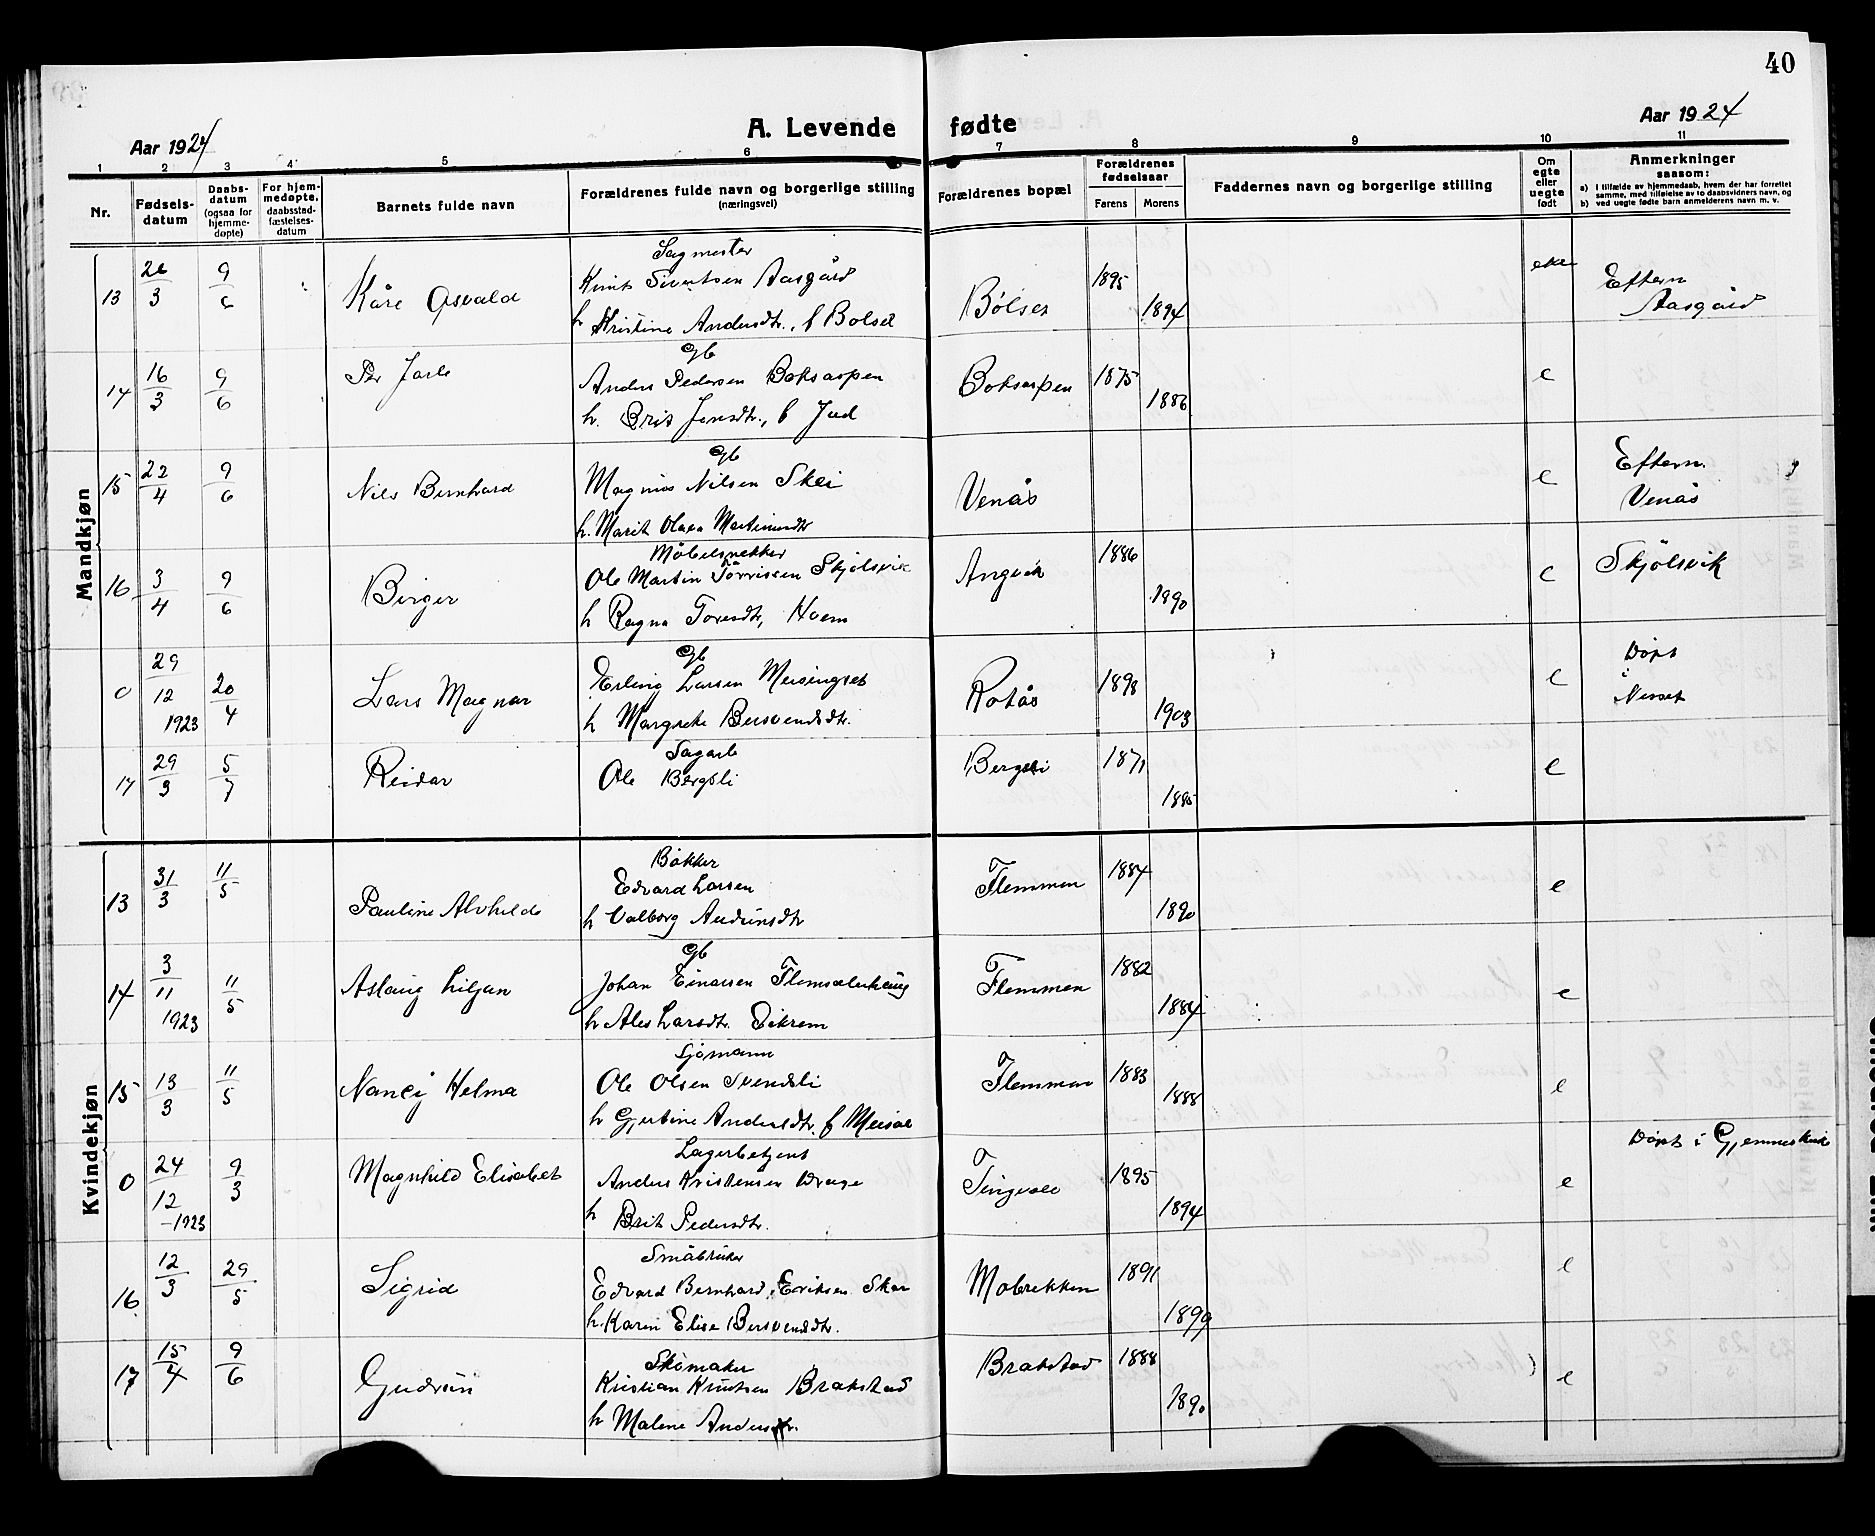 40
A. Levende fødte
Aar 1924
Aar 1924
1 2 3 4 5 6 7 8 9 10 11
Nr.
Fødsels-
datum
Daabs-
datum
(ogsaa for
hjemme-
døpte)
For hjem-
medøpte,
daabsstad-
fæstelses-
datum
Barnets fulde navn
Forældrenes fulde navn og borgerlige stilling
(næringsvei)
Forældrenes bopæl
Forældrenes
fødselsaar
Farens
Morens
Faddernes navn og borgerlige stilling
Om
egte
eller
uegte
født
Anmerkninger
saasom:
a) I tilfælde av hjemmedaab, hvem der har forrettet
samme, med tilføielse av to daabsvidners navn, og
b) ved uegte fødte barn anmelderens navn m. v.
Mandkjøn
Sagmester
13 26/3 9/6 Kåre Osvald Knut Sivertsen Aasgård Bølset 1895 ekte Eftern
h Kristine Andersdtr., f Bolset 1894 Aasgård
Gb
14 16/3 9/6 Per Jarle Anders Pedersen Boksaspen Boksaspen 1875 e
h. Brit Jensdtr., f Jul 1886
Gb
15 22/4 9/6 Nils Bernhard Magnus Nilsen Skei Venås e Eftern.
h. Marit Olava Martinusdtr Venås
Møbelsnekker
16 3/4 9/6 Birger Ole Martin Tørrissen Skjølsvik Angvik 1886 e Skjølsvik
h Ragna Toresdtr, Hoem 1890
Gb
0 29/12 1923 20/4 Lars Magnar Erling Larsen Meisingset Rotås 1898 e Døpt
h Margrete Bersvendsdtr. 1903 i Nesset
Sagarb
17 29/3 5/7 Reidar Ole Bergsli Bergsli 1871 e
1885
Kvindekjøn
Bøkker
13 31/3 11/5 Pauline Alvhilde Edvard Larsen Flemmen 1884 e
h Valborg Andrinsdtr 1890
Gb
14 3/11 1923 11/5 Aslaug Liljan Johan Einarsen Flemsæterhaug Flemmen 1882 e
h Ales Larsdtr. Eikrem 1884
Sjømann
15 13/3 11/5 Nancy Helma Ole Olsen Svendsli Flemmen 1883 e
h Gjertine Andersdtr. f Meisal 1888
Lagerbetjent
0 24/12 -1923 9/3 Magnhild Elisabet Anders Kristensen Drage Tingvoll 1895 e Døpt i Gjemneskirke
h Brit Pedersdtr. 1894
Småbruker
16 12/3 29/5 Sigrid Edvard Bernhard Eriksen Skar Mobrekken 1891 e
h. Karen Elise Bersvendsdtr. 1899
Skomaker
17 15/4 9/6 Gudrun Kristian Knutsen Brakstad Brakstad 1888 e
h Malene Andersdtr. 1890